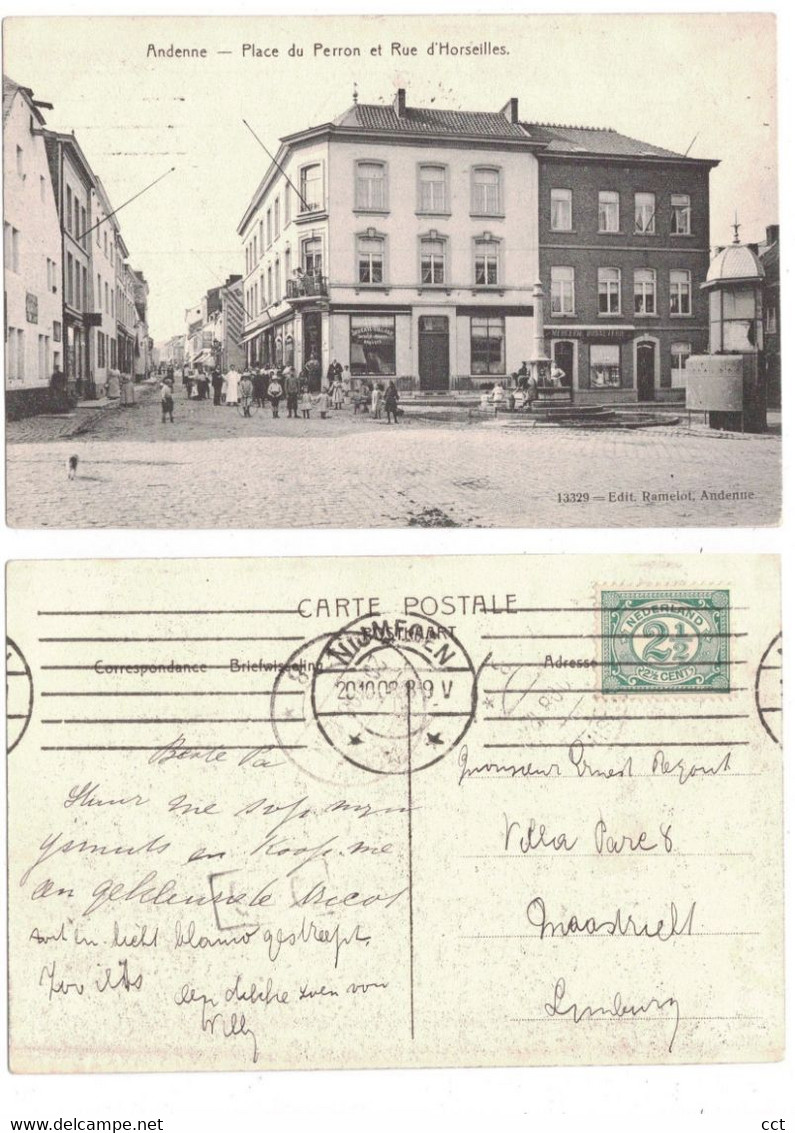 Andenne — Place du Perron et Rue d'Horseilles.
13329 — Edit. Ramelot, Andenne
CARTE POSTALE
POSTKAART
Correspondance Briefwisseling
Adresse
NIJMEGEN
20.10.08 8-9 V
NEDERLAND
2½
(2½ CENT)
Beste Pa
Stuur me s.v.p. mijn
ijsmuts en Koop me
en gekleurde tricot
wit en licht blauw gestreept.
Zoo iets
een dikke zoen van
Willy
Monsieur Ernest Regout
Villa Parc 8
Maastricht
Limburg
cct